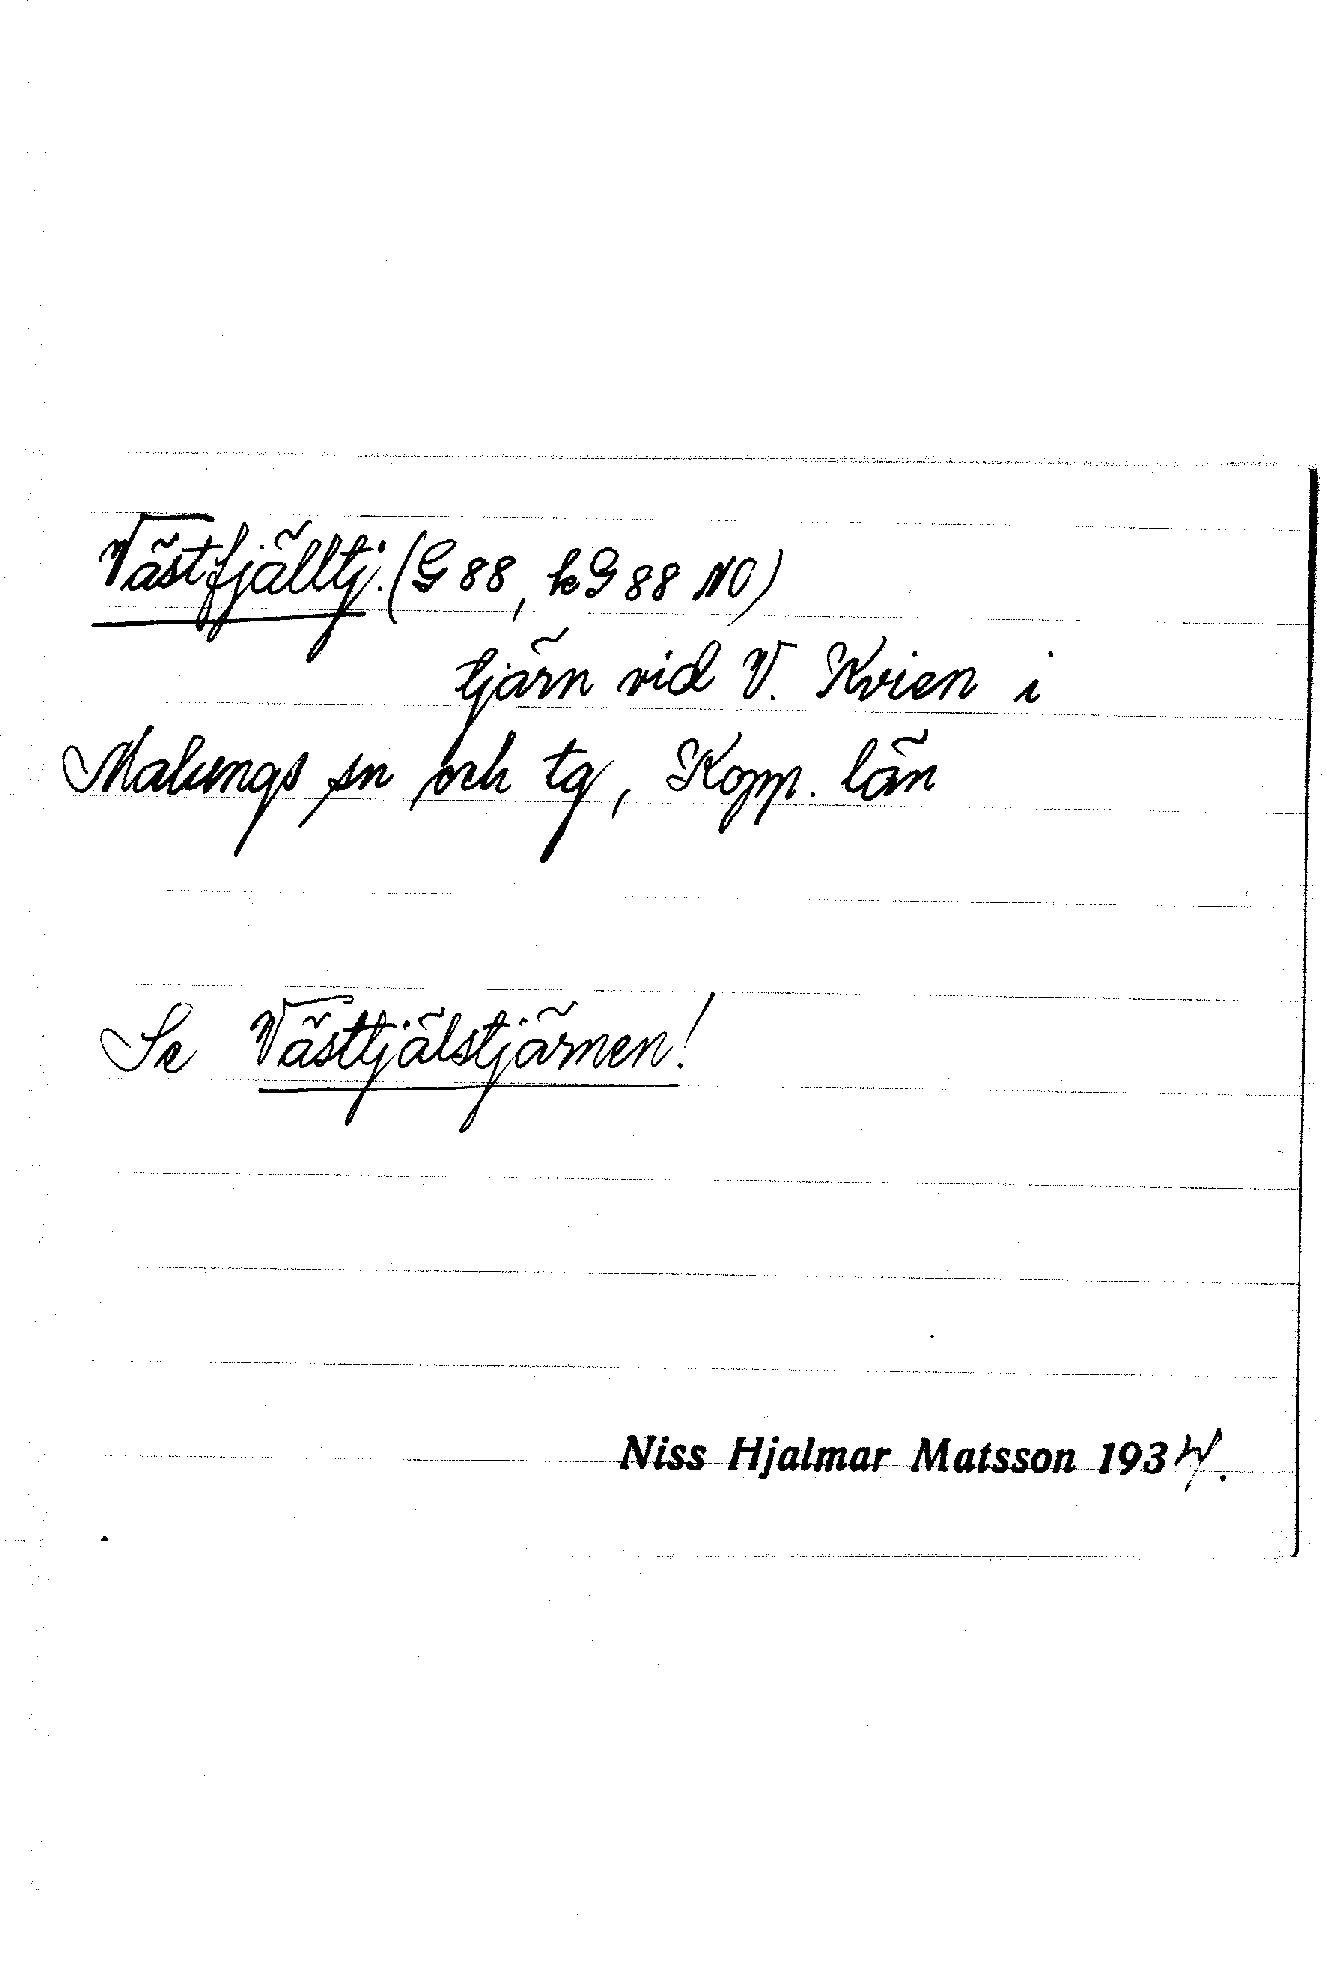 Västfjälltj. (G 88, kG 88 NO)
tjärn vid V. Kvien i
Malungs sn och tg, Kopp. län
Se Västtjälstjärnen!
Niss Hjalmar Matsson 1934.